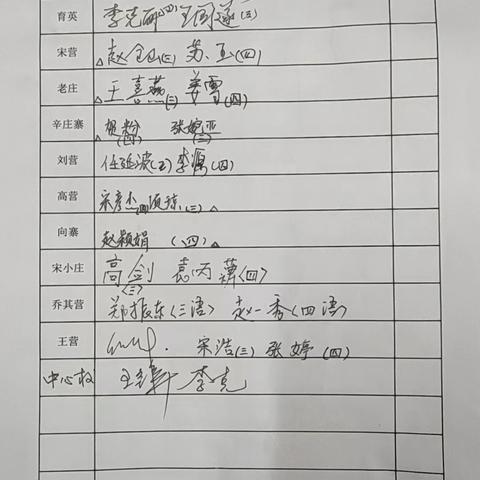 育英 李克 (四) (三)
宋营 △赵 (三) 苏玉(四)
老庄 △王喜燕(三) 姜雪(四)
辛庄寨 △ (四) 张婉亚(三)
刘营 任延波(三)李源(四)
高营 宋彦杰(四) 琼(三)△
向寨 赵颖娟 (四)△
宋小庄 高剑(三) 袁丙 (四)
乔其营 郑振东(三语) 赵一秀(四语)
王营 宋浩(三) 张婷(四)
中心校 王 李克